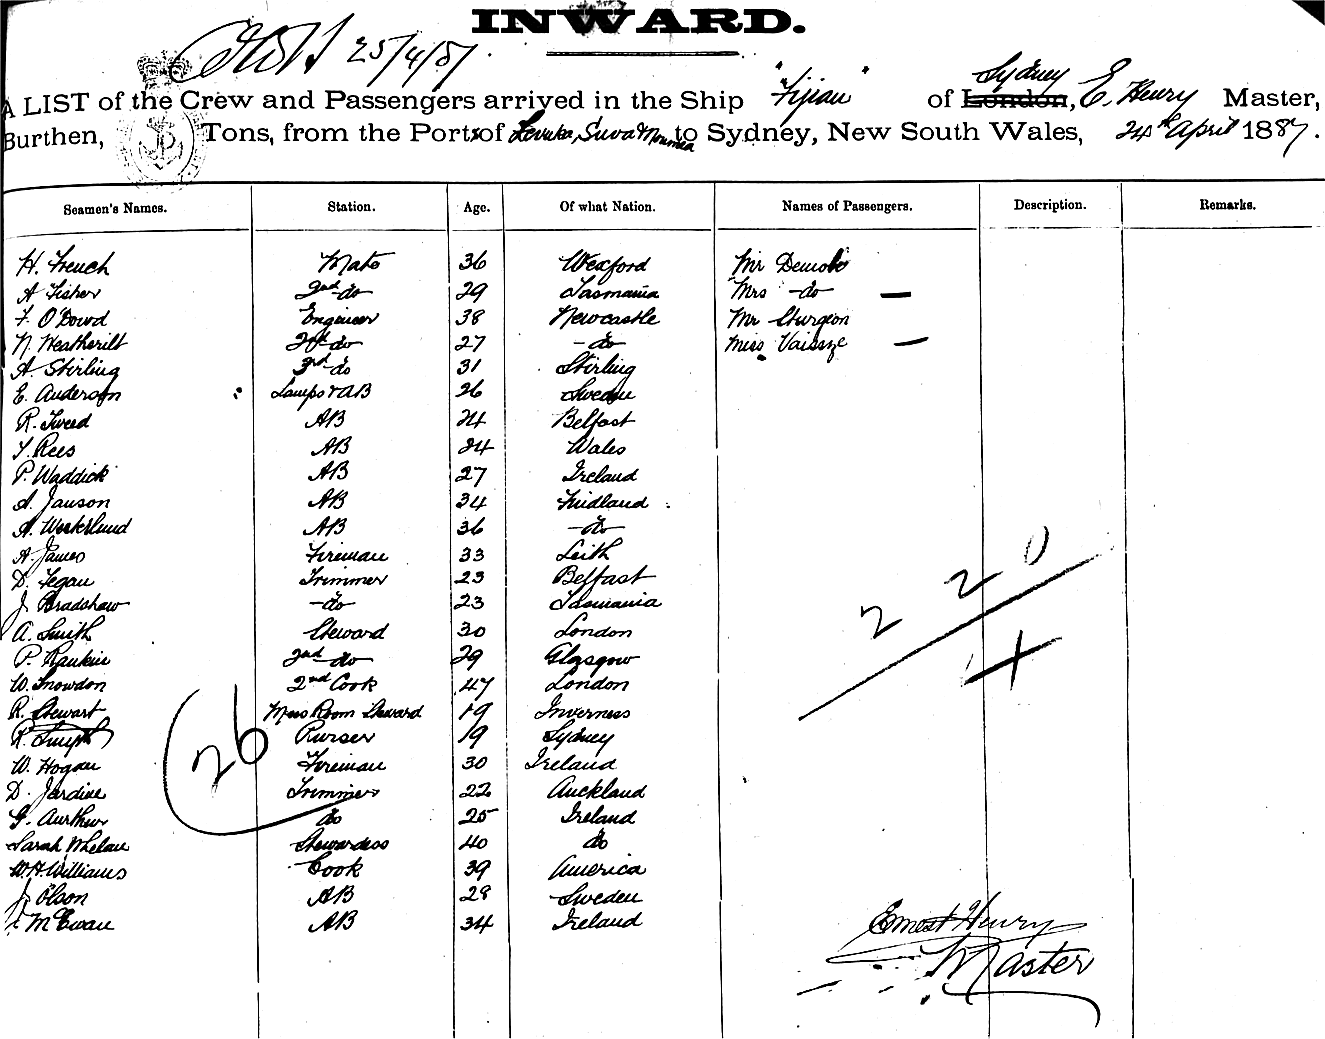 INWARD.
25/4/87.
A LIST of the Crew and Passengers arrived in the Ship "Fijian" of London, Sydney, E. Henry Master,
Burthen, Tons, from the Ports of Levuka, Suva to Sydney, New South Wales, 24th April 1887.
Seamen's Names. Station. Age. Of what Nation. Names of Passengers. Description. Remarks.
H. French Mate 36 Wexford Mr
A Fisher 2nd do 29 Tasmania Mrs do —
F. O'Dowd Engineer 38 Newcastle Mr Sturgeon
N. Weatherilt 2nd do 27 do Miss —
A. Stirling 3rd do 31 Stirling
E. Anderson Lamps & AB 26 Sweden
R. Tweed AB 24 Belfast
T. Rees AB 24 Wales
P. Waddick AB 27 Ireland
A. Janson AB 34 Findland
A. Westerlund AB 36 do
A. James Fireman 33 Leith
D. Fegan Trimmer 23 Belfast
J. Bradshaw do 23 Tasmania
A. Smith Steward 30 London
P. Rankin 2nd do 29 Glasgow
W. Snowdon 2nd Cook 47 London
R. Stewart Mess Room Steward 19 Inverness
R. Smyth Purser 19 Sydney
W. Hogan Fireman 30 Ireland
D. Jardine Trimmer 22 Auckland
G. Aurthur do 25 Ireland
Sarah Whelan Stewardess 40 do
W.H. Williams Cook 39 America
J. Olson AB 28 Sweden
McEwan AB 34 Ireland
26
2 2 0
4
Ernest Henry
Master